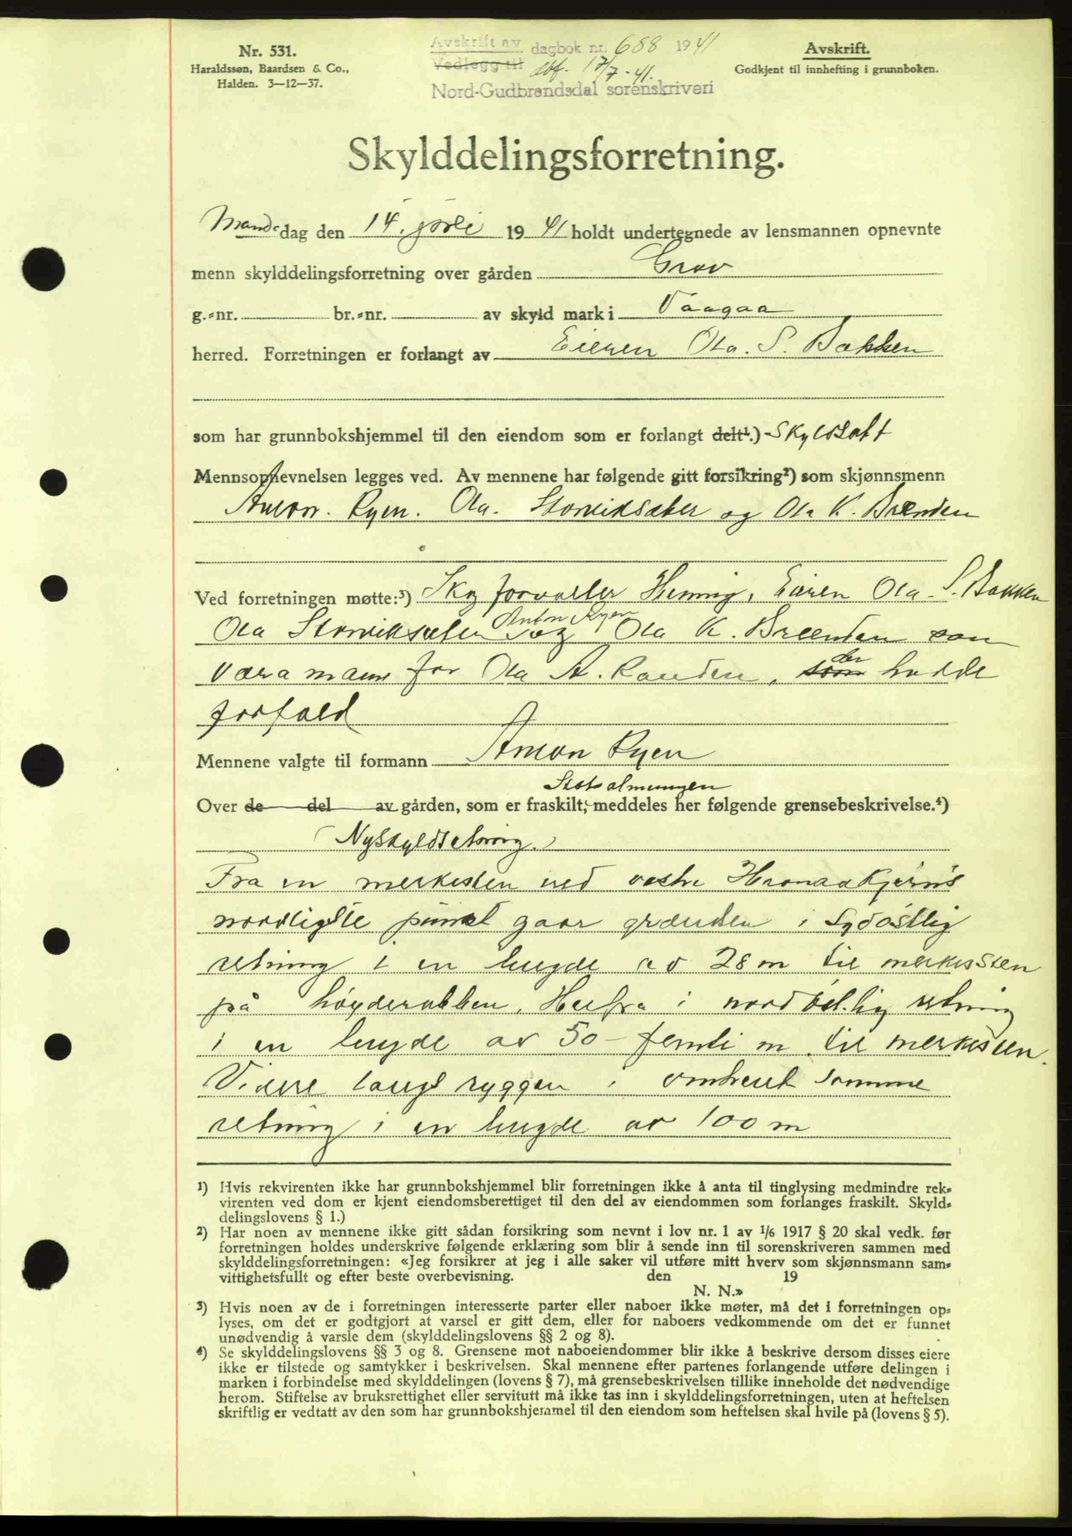 Nr. 531.
Haraldssøn, Baardsen & Co.,
Halden. 3—12—37.
Avskrift av dagbok nr. 688 1941
Vedlegg til avf. 17/7-41.
Nord-Gudbrandsdal sorenskriveri
Avskrift.
Godkjent til innhefting i grunnboken.
Skylddelingsforretning.
Mandadag den 14. juli 1941 holdt undertegnede av lensmannen opnevnte
menn skylddelingsforretning over gården Grov
g.-nr. br.-nr. av skyld mark i Vaagaa
herred. Forretningen er forlangt av Eieren Ola. S. Bakken
som har grunnbokshjemmel til den eiendom som er forlangt delt¹.) Skyldsatt
Mennsopnevnelsen legges ved. Av mennene har følgende gitt forsikring²) som skjønnsmenn
Anton. Ryen. Ola. Storviksæter og Ola K. Brænden
Ved forretningen møtte:³) Skogforvalter Henning, Eieren Ola. S. Bakken
Anton Ryen
Ola Storviksæter og Ola K. Brænden som
varamann for Ola A. Randen, som der hadde
forfald
Mennene valgte til formann Anton Ryen
Statsalmungen
Over de del av gården, som er fraskilt, meddeles her følgende grensebeskrivelse.⁴)
(Nyskyldsetning.)
Fra en merkesten ved vestre
nordligste punkt gaar grænsen i Sydöstlig
retning i en lengde av 28 m til merkesten
på høyderabben. Herfra i nordöstlig retning
i en lengde av 50 – femti m. til merkesten.
Videre langs ryggen i omtrent samme
retning i en lengde av 100 m
¹) Hvis rekvirenten ikke har grunnbokshjemmel blir forretningen ikke å anta til tinglysing medmindre rek-
virenten ved dom er kjent eiendomsberettiget til den del av eiendommen som forlanges fraskilt. Skyld-
delingslovens § 1.)
²) Har noen av mennene ikke gitt sådan forsikring som nevnt i lov nr. 1 av 1/6 1917 § 20 skal vedk. før
forretningen holdes underskrive følgende erklæring som blir å sende inn til sorenskriveren sammen med
skylddelingsforretningen: «Jeg forsikrer at jeg i alle saker vil utføre mitt hverv som skjønnsmann sam-
vittighetsfullt og efter beste overbevisning. den 19
N. N.»
³) Hvis noen av de i forretningen interesserte parter eller naboer ikke møter, må det i forretningen op-
lyses, om det er godtgjort at varsel er gitt dem, eller for naboers vedkommende om det er funnet
unødvendig å varsle dem (skylddelingslovens §§ 2 og 8).
⁴) Se skylddelingslovens §§ 3 og 8. Grensene mot naboeiendommer blir ikke å beskrive dersom disses eiere
ikke er tilstede og samtykker i beskrivelsen. Skal mennene efter partenes forlangende utføre delingen i
marken i forbindelse med skylddelingen (lovens § 7), må grensebeskrivelsen tillike inneholde det nødvendige
herom. Stiftelse av bruksrettighet eller servitutt må ikke tas inn i skylddelingsforretningen, uten at heftelsen
skriftlig er vedtatt av den som har grunnbokshjemmel til den eiendom som heftelsen skal hvile på (lovens § 5).